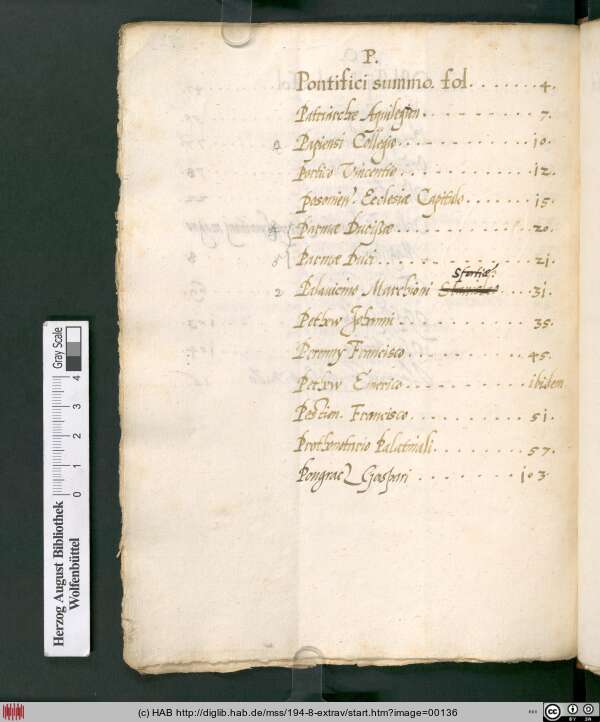 P.
Pontifici summo. fol. . . . . . . 4.
Patriarche Aquilegien . . . . . . . . 7.
2 Papiensi Collegio . . . . . . . . 10.
Portico Vincentio . . . . . . . . 12.
posonien. Ecclesiæ Capitulo . . . . . . 15.
4 Parmæ Ducissæ . . . . . . . . 20.
5 Parmæ Duci . . . . . . . . 21.
Sfortiæ.
2 Palavicino Marchioni . . . . 31.
Petheo Johanni . . . . . . . . 35.
Perenny Francisco . . . . . . . . 45.
Petheo Emerico . . . . . . . . ibidem
Pestien. Francisco . . . . . . . . 51.
Prothonotario Palatinali . . . . . . . 57.
Pongracz Gaspari . . . . . . . . 103.
Gray Scale
0 1 2 3 4
Herzog August Bibliothek
Wolfenbüttel
(c) HAB http://diglib.hab.de/mss/194-8-extrav/start.htm?image=00136
BY SA